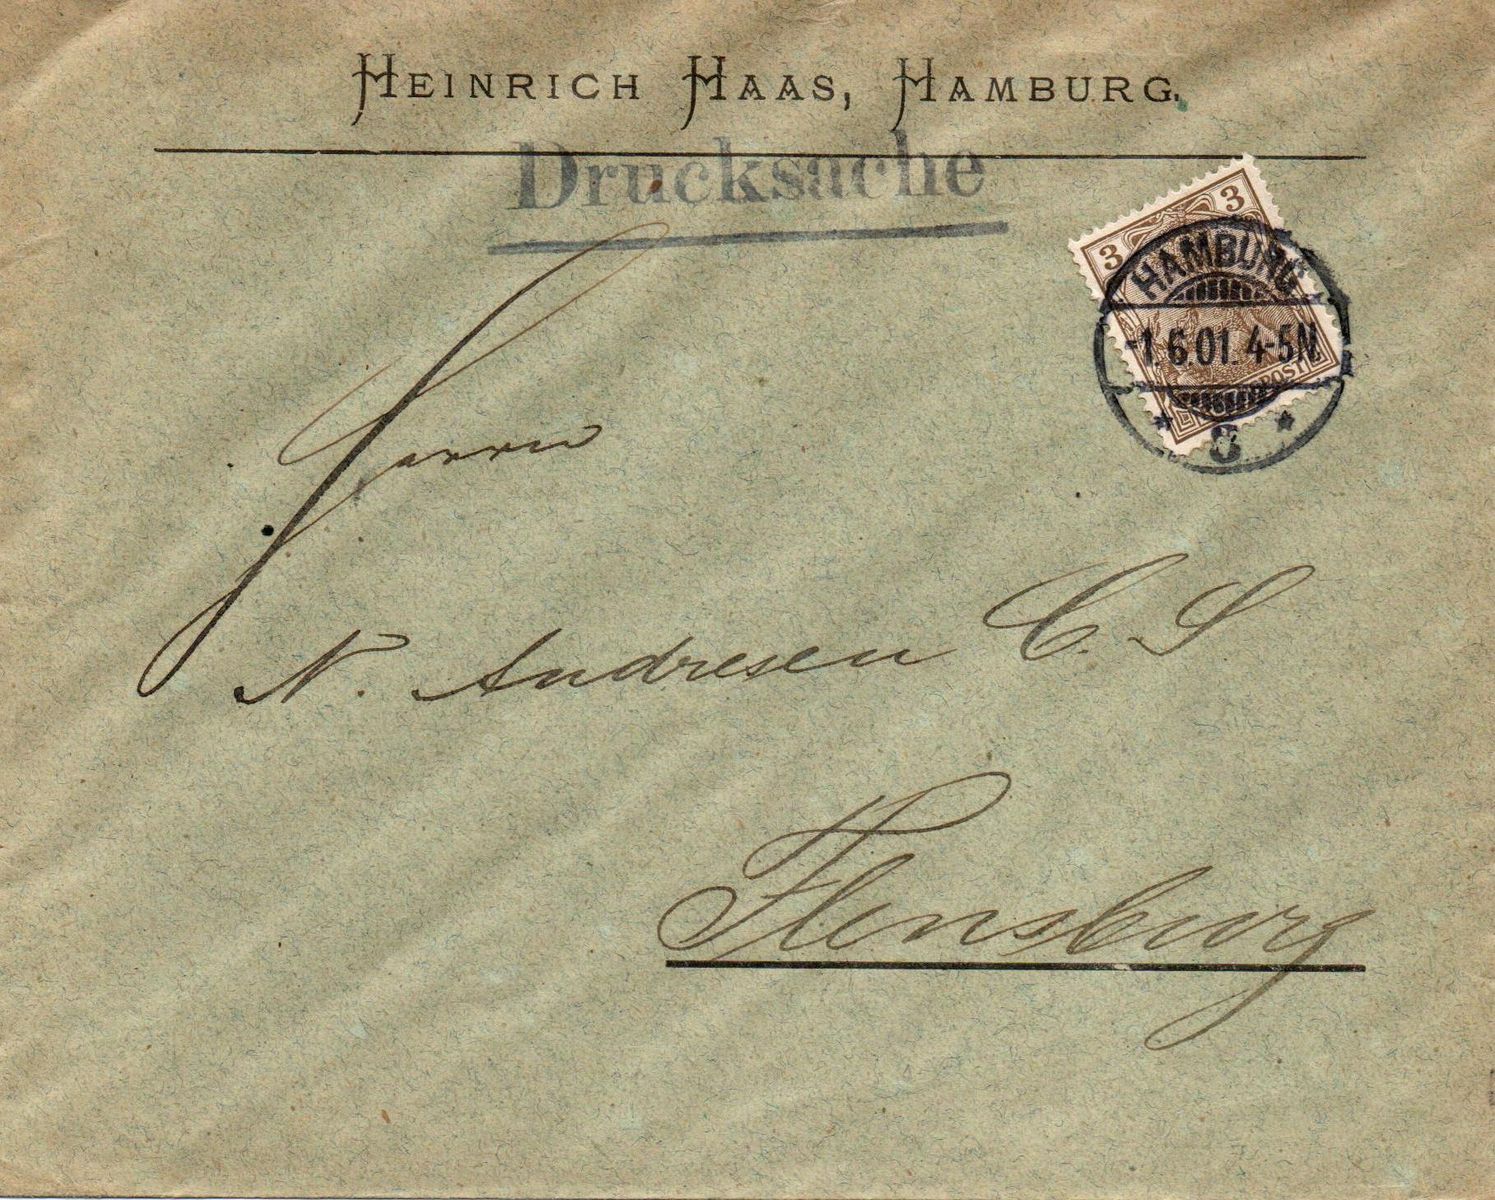 HEINRICH HAAS, HAMBURG.
Drucksache
3 3
HAMBURG
-1.6.01. 4-5N.
* 8 *
POST
Herrn
N. Andresen C. S
Flensburg